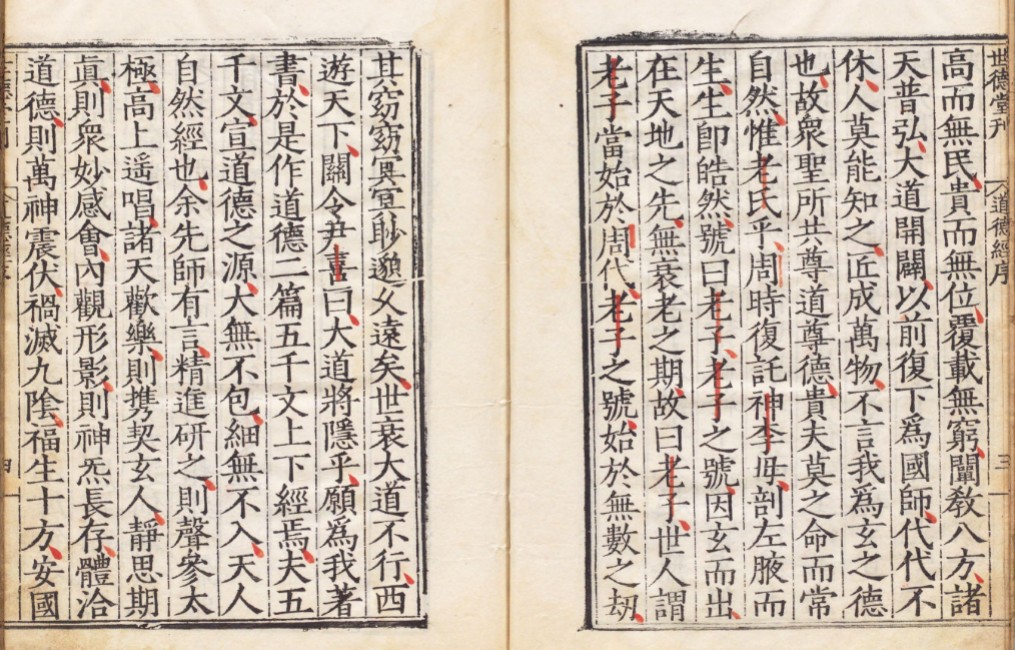 世德堂刊 道德經序 三
高而無民貴而無位覆載無窮闡敎八方諸
天普弘大道開闢以前復下爲國師代代不
休人莫能知之匠成萬物不言我爲玄之德
也故衆聖所共尊道尊德貴夫莫之命而常
自然惟老氏乎周時復託神李母剖左腋而
生生卽皓然號曰老子老子之號因玄而出
在天地之先無衰老之期故曰老子世人謂
老子當始於周代老子之號始於無數之劫
其窈窈冥冥眇邈久遠矣世衰大道不行西
遊天下關令尹喜曰大道將隱乎願爲我著
書於是作道德二篇五千文上下經焉夫五
千文宣道德之源大無不包細無不入天人
自然經也余先師有言精進研之則聲參太
極高上遥唱諸天歡樂則携契玄人靜思期
眞則衆妙感會內觀形影則神炁長存體洽
道德則萬神震伏禍滅九陰福生十方安國